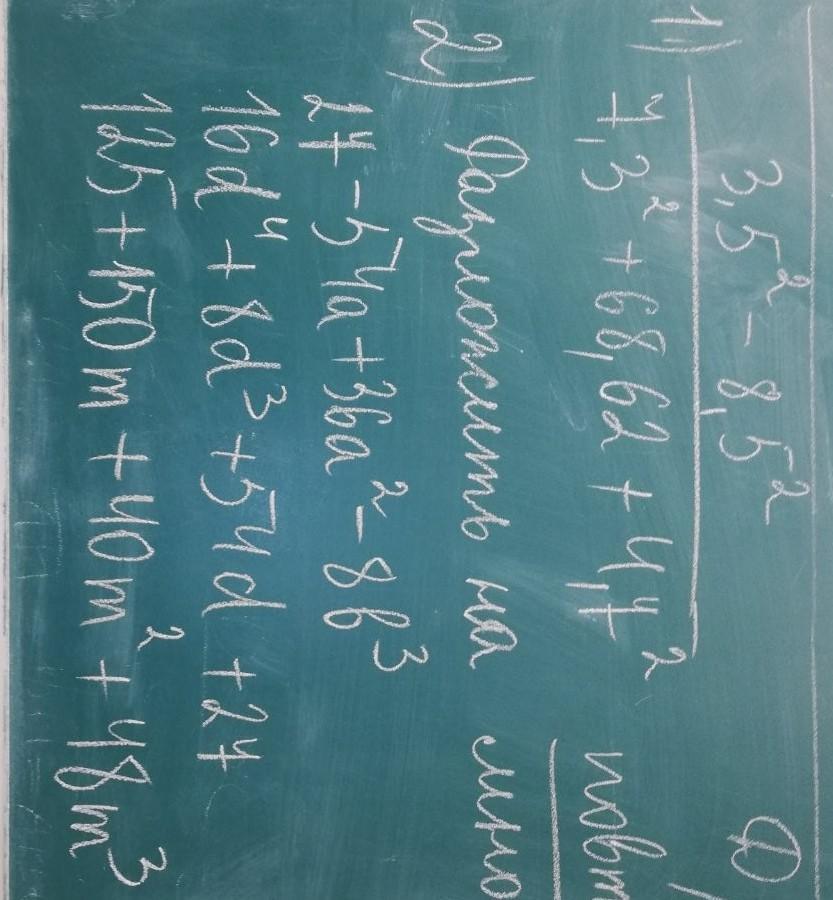 3,5² - 8,5²
1) 7,3² + 68,62 + 4,7² повт
2) Разложить на мно
27 - 54a + 36a² - 8b³
16d⁴ + 8d³ + 54d + 27
125 + 150m + 40m² + 48m³